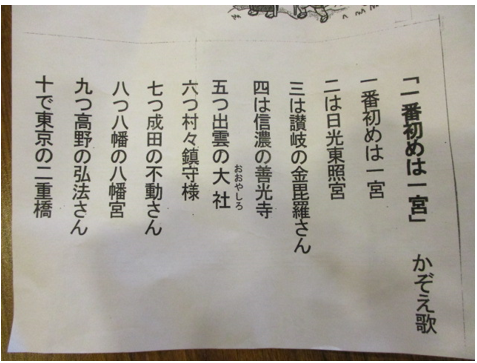 「一番初めは一宮」 かぞえ歌
一番初めは一宮
二は日光東照宮
三は讃岐の金毘羅さん
四は信濃の善光寺
五つ出雲の大社
おおやしろ
六つ村々鎮守様
七つ成田の不動さん
八つ八幡の八幡宮
九つ高野の弘法さん
十で東京の二重橋